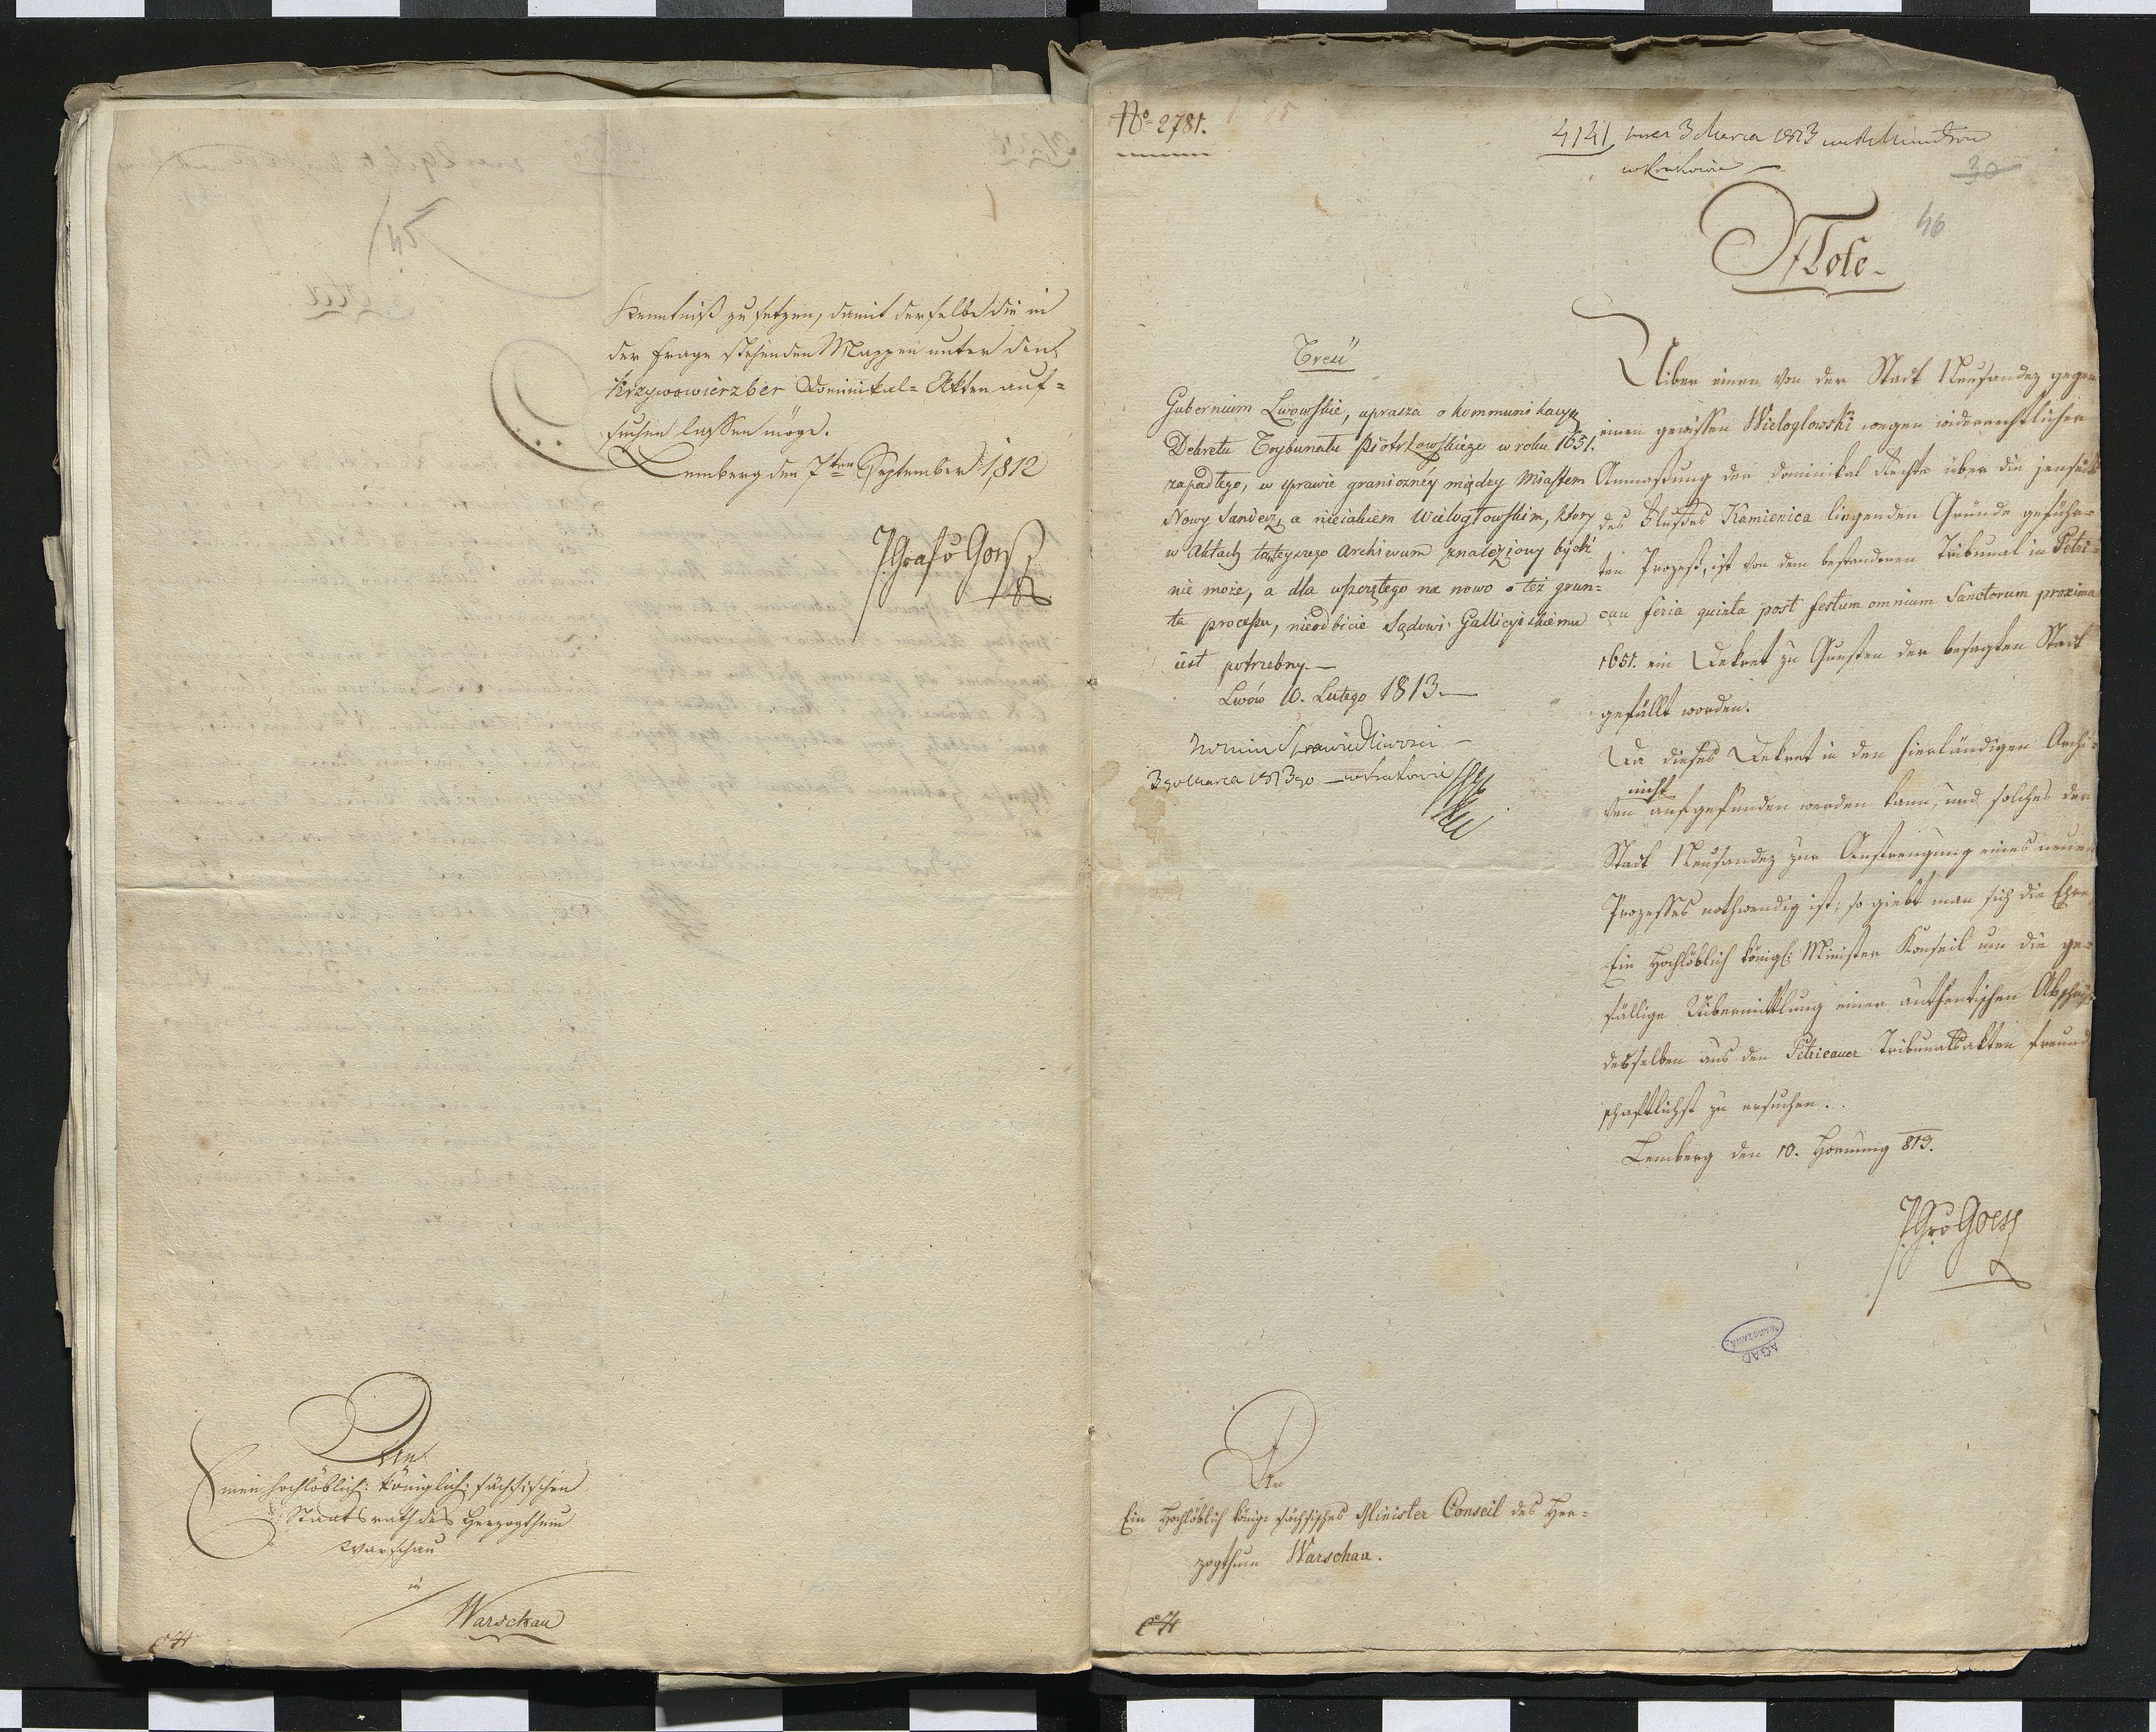 Kenntniß zu setzen, damit derselbe die in
der Frage stehenden Mappen unter den
Krzywowierzber Dominikal-Akten auf-
suchen lassen möge.
Lemberg den 7ten September 1812
Graf v Goess
An
Einen hochlöblich: königlich: sächsischen
Staatsrath des Herzogthum
Warschau
in
Warschau
No 2781.
4141 3 Marca 1813
w Krakowie
30
46
Note
Treść
Gubernium Lwowskie, uprasza o kommunikacyą
Dekretu Trybunału Piotrkowskiego w roku 1651.
zapadłego, w sprawie graniczney między Miastem
Nowy Sandecz, a nieiakiem Wielogłowskim, ktory
w Aktach tamteyszego Archiwum znaleziony bydź
nie może, a dla wszczętego na nowo o też grun-
ta processu, nieodbicie Sądowi Gallicyiskiemu
iest potrzebny.
Lwów 10. Lutego 1813
Sprawiedliwosci
3go Marca 1813go w Krakowie
Uiber einen von der Stadt Neusandez gegen
einen gewissen Wieloglowski wegen widerrechtlicher
Anmaßung der Dominikal Rechte über die jenseits
des Flußes Kamienica liegenden Gründe geführ-
ten Prozeß, ist von dem bestandenen Tribunal in Petri-
cau feria quinta post festum omnium Sanctorum proxima
1651. ein Dekret zu Gunsten der besagten Stadt
gefällt worden.
Da dieses Dekret in den hierländigen Archi-
nicht
ven aufgefunden werden kann, und solches der
Stadt Neusandez zur Anstrengung eines neuen
Prozesses nothwendig ist; so giebt man sich die Ehre
Ein Hochlöblich königl: Minister Konseil um die ge-
fällige Uibermittlung einer authentischen Abschrift
desselben aus den Petricauer Tribunalsakten freund
schaftlichst zu ersuchen.
Lemberg den 10. Hornung 813.
Goess
AGAD
WARSZAWA
An
Ein Hochlöblich königl: sächsisches Minister Conseil des Her-
zogthum Warschau.